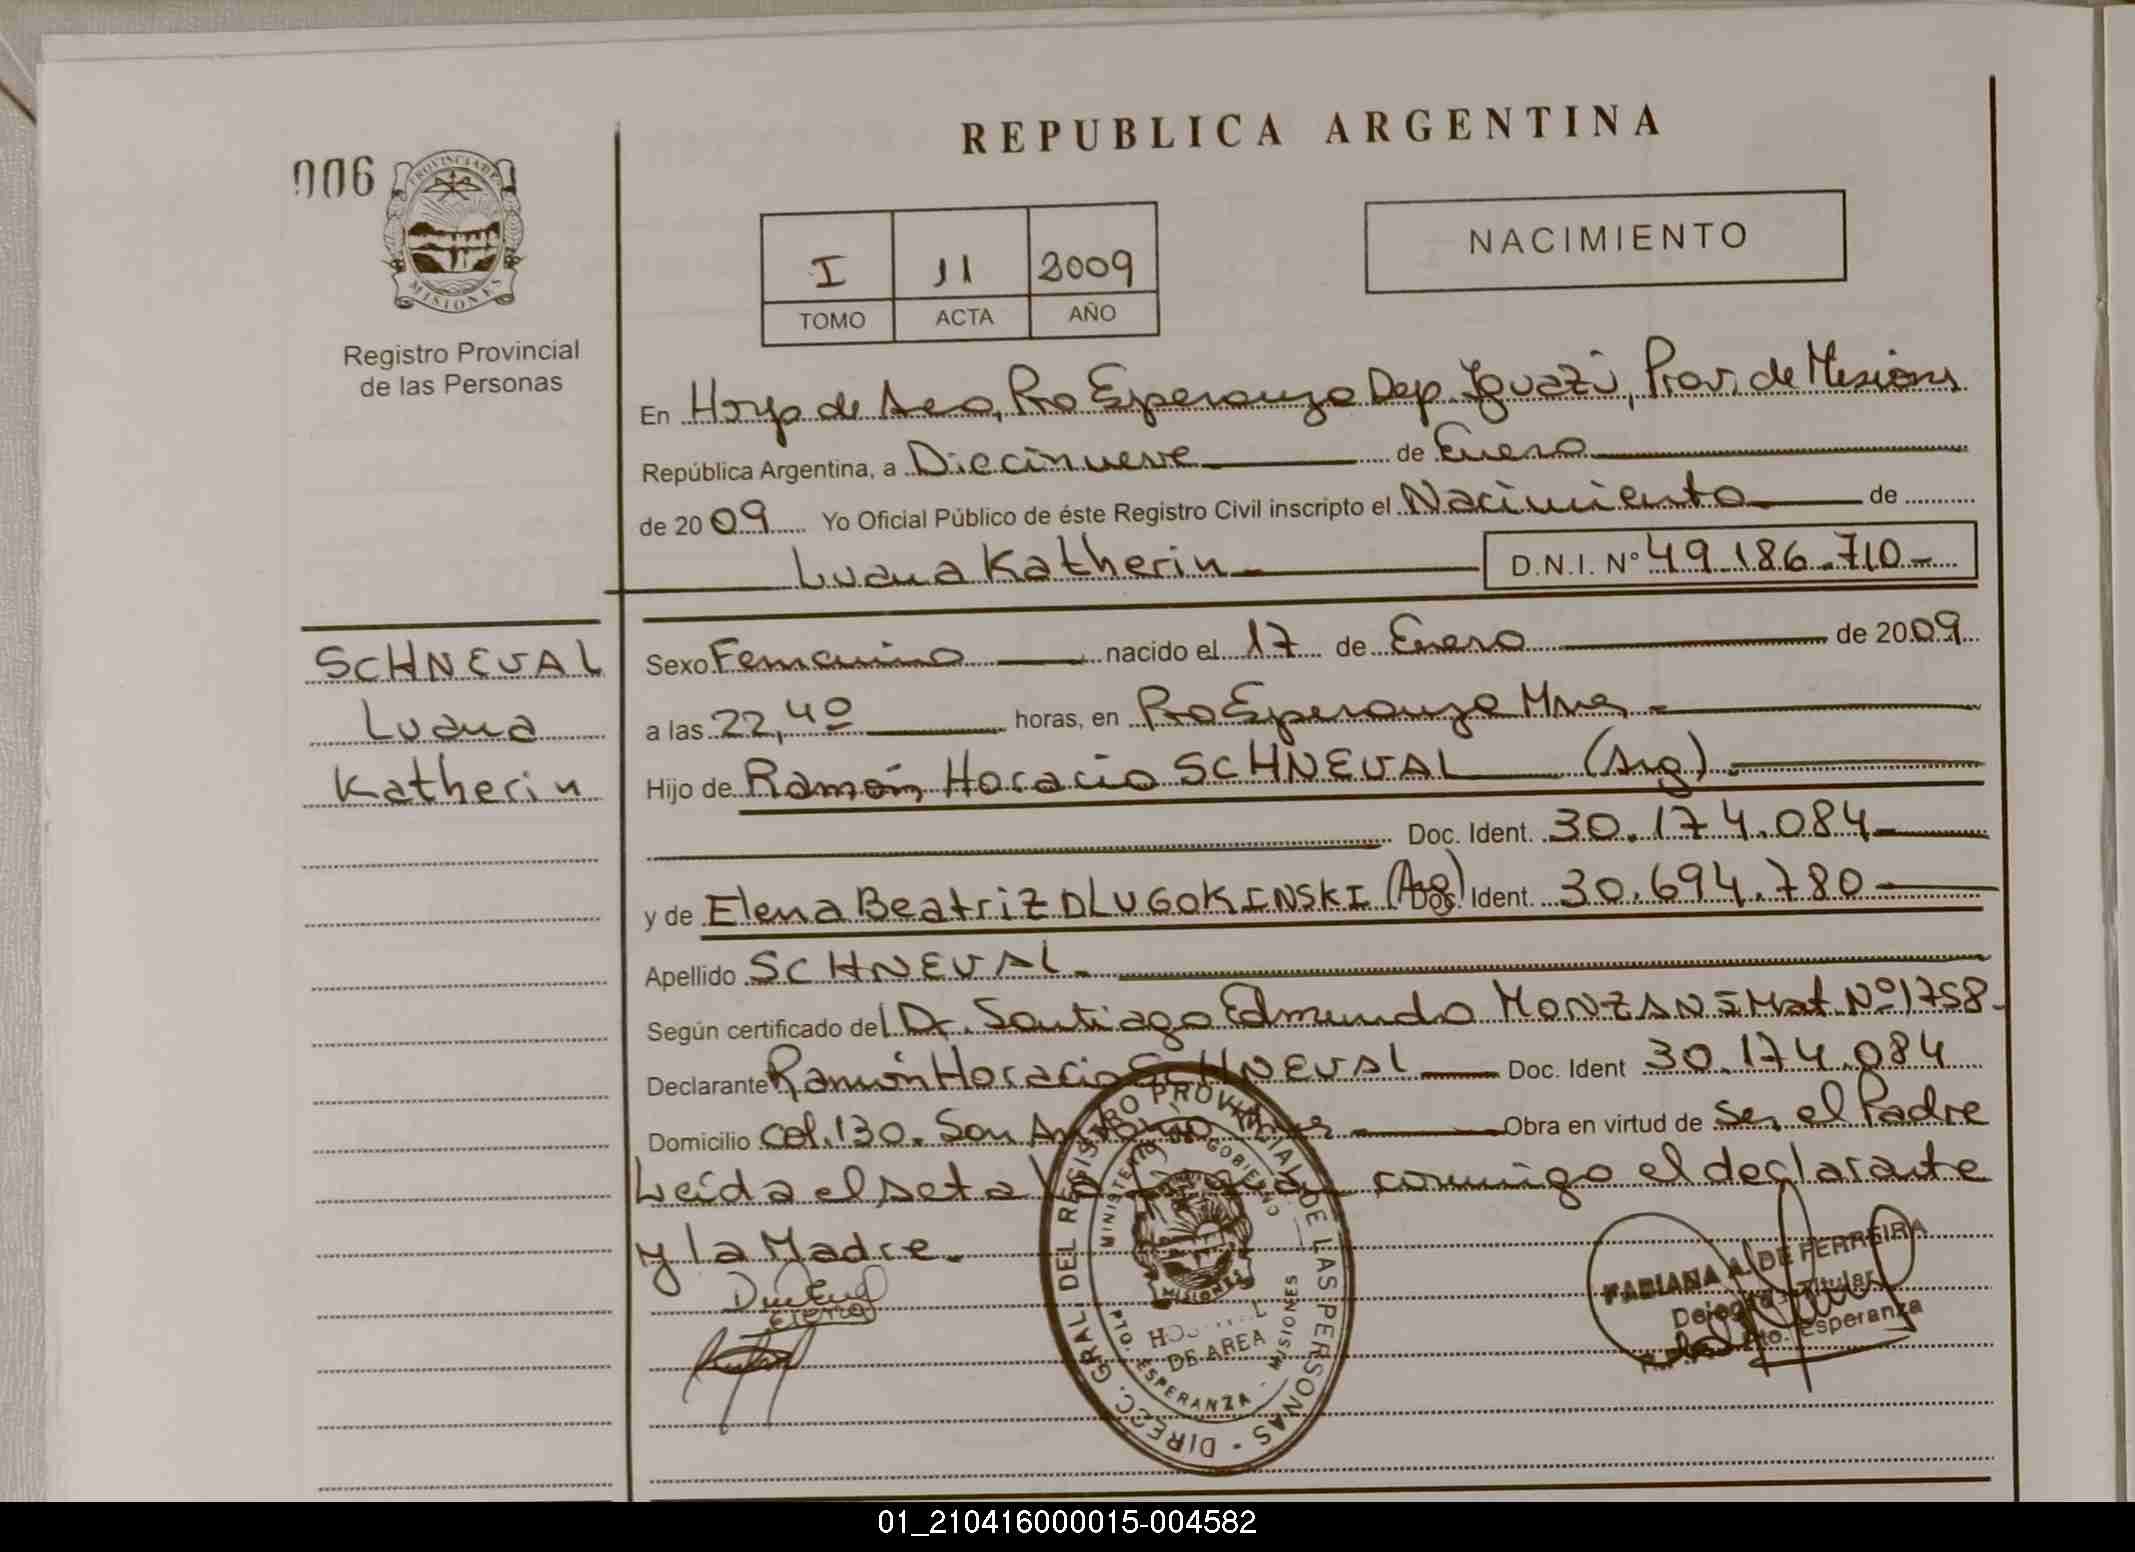 REPUBLICA ARGENTINA
006
PROVINCIA DE
MISIONES
Registro Provincial
de las Personas
I 11 2009
TOMO ACTA AÑO
NACIMIENTO
En Hosp de Area, Pto Esperanza Dep. Iguazú, Prov. de Misiones
República Argentina, a Diecinueve de Enero
de 2009 Yo Oficial Público de éste Registro Civil inscripto el Nacimiento de
Luana Katherin D.N.I. Nº 49.186.710-
SCHNEVAL
Luana
Katherin
Sexo Femenino nacido el 17 de Enero de 2009
a las 22,40 horas, en Pto Esperanza Mnes
Hijo de Ramón Horacio SCHNEVAL (Arg)
Doc. Ident. 30.174.084
y de Elena Beatriz DLUGOKINSKI (Arg) Doc. Ident. 30.694.780
Apellido SCHNEVAL
Según certificado del Dr. Santiago Edmundo MONZANI Mat. Nº 1758-
Declarante Ramón Horacio SCHNEVAL Doc. Ident 30.174.084
Domicilio col. 130. San Antonio Mnes Obra en virtud de Ser el Padre
Leída el acta conmigo el declarante
y la Madre.
Elena
DIRECC. GRAL DEL REGISTRO PROVINCIAL DE LAS PERSONAS
MINISTERIO DE GOBIERNO
MISIONES
DE AREA
PTO. ESPERANZA - MISIONES
FABIANA A. DE FERREIRA
Delegada Titular
Pto. Esperanza
01_210416000015-004582